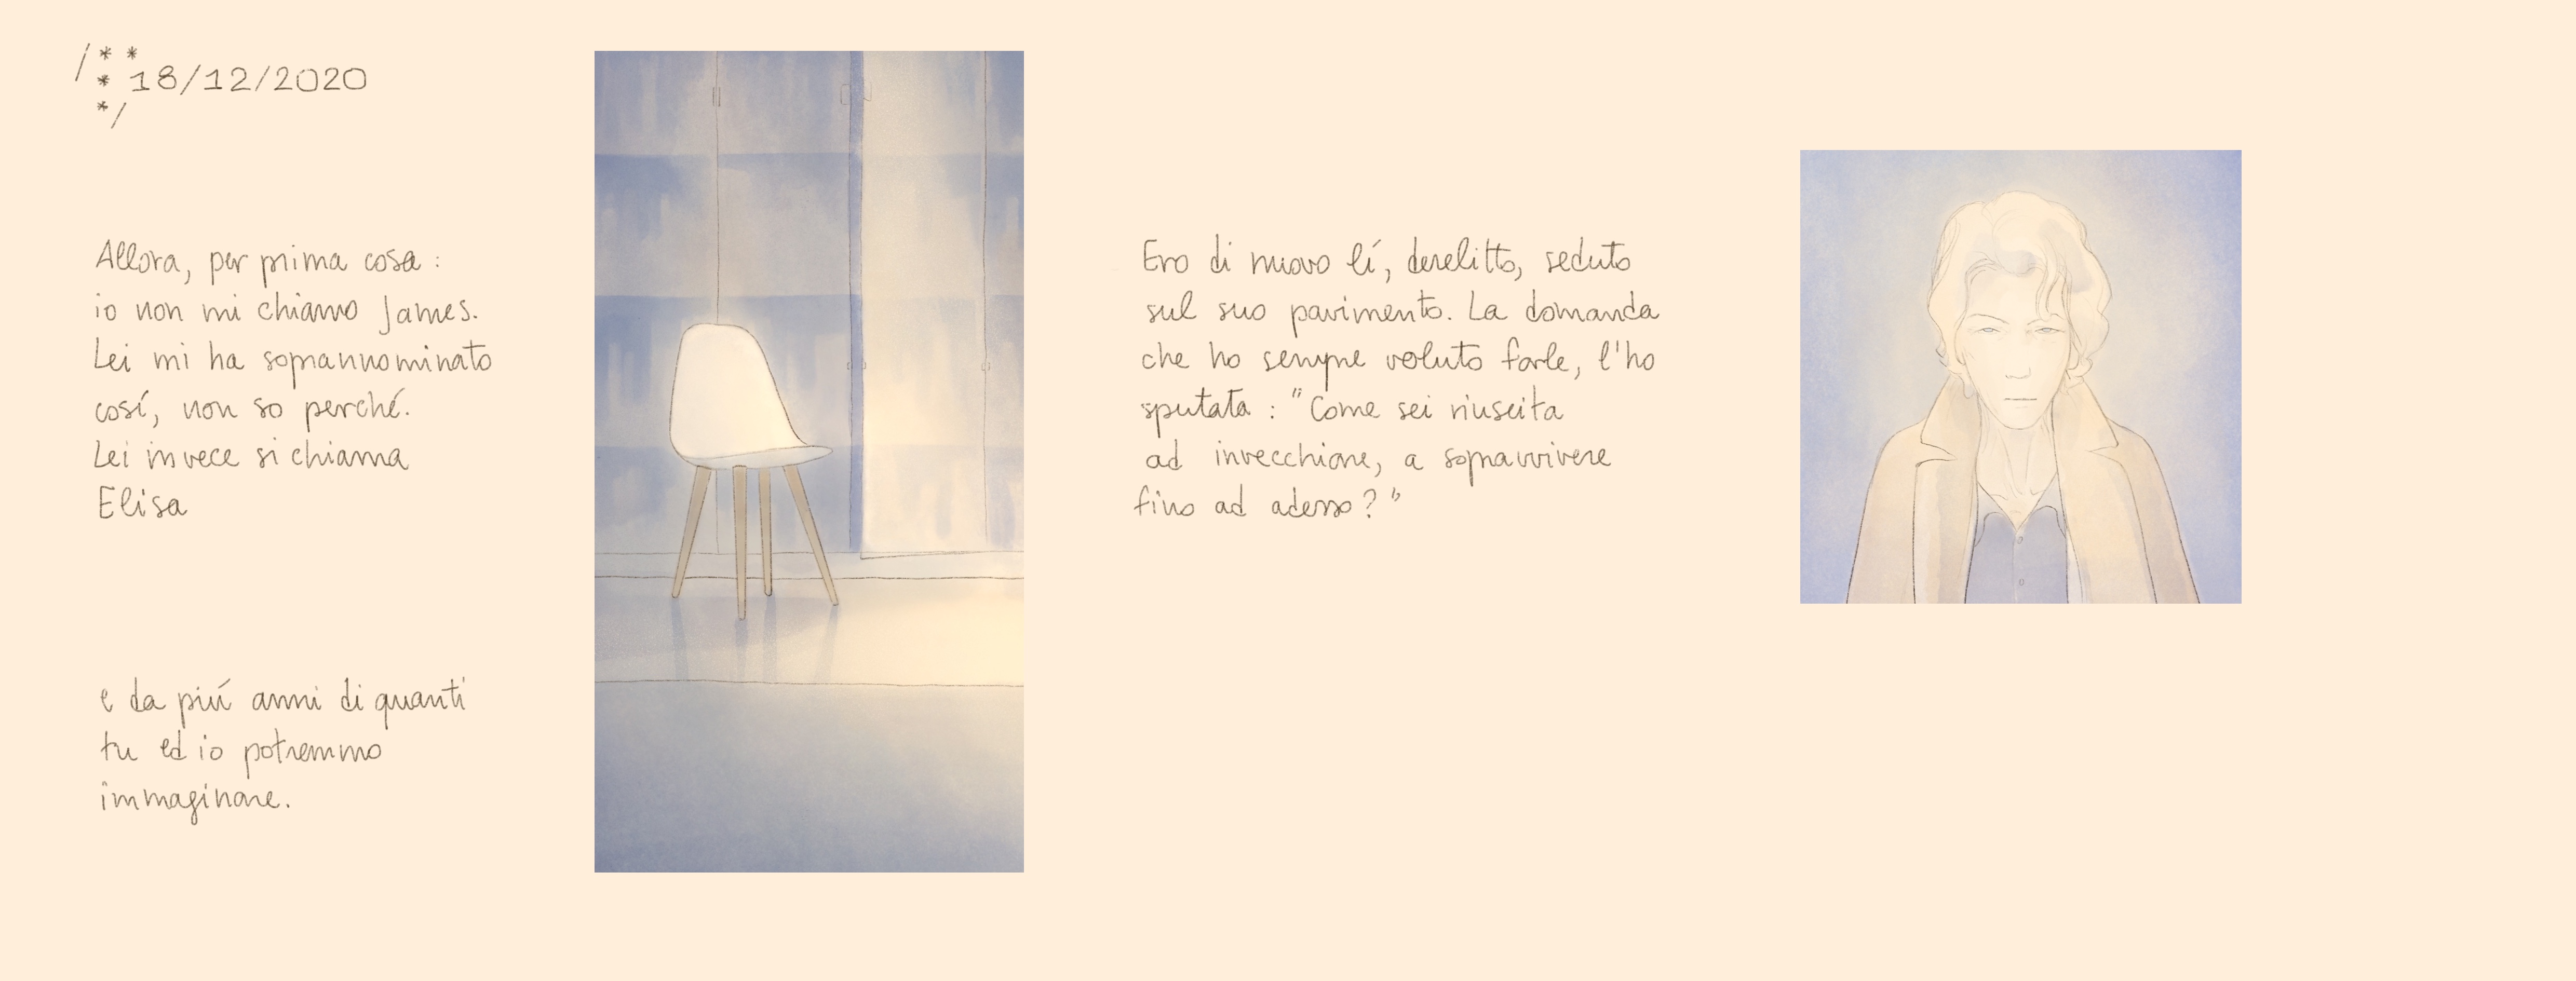 /**
* 18/12/2020
*/
Allora, per prima cosa :
io non mi chiamo James.
Lei mi ha soprannominato
cosí, non so perché.
Lei invece si chiama
Elisa
e da piú anni di quanti
tu ed io potremmo
immaginare.
Ero di nuovo lí, derelitto, seduto
sul suo pavimento. La domanda
che ho sempre voluto farle, l'ho
sputata : "Come sei riuscita
ad invecchiare, a sopravvivere
fino ad adesso?"